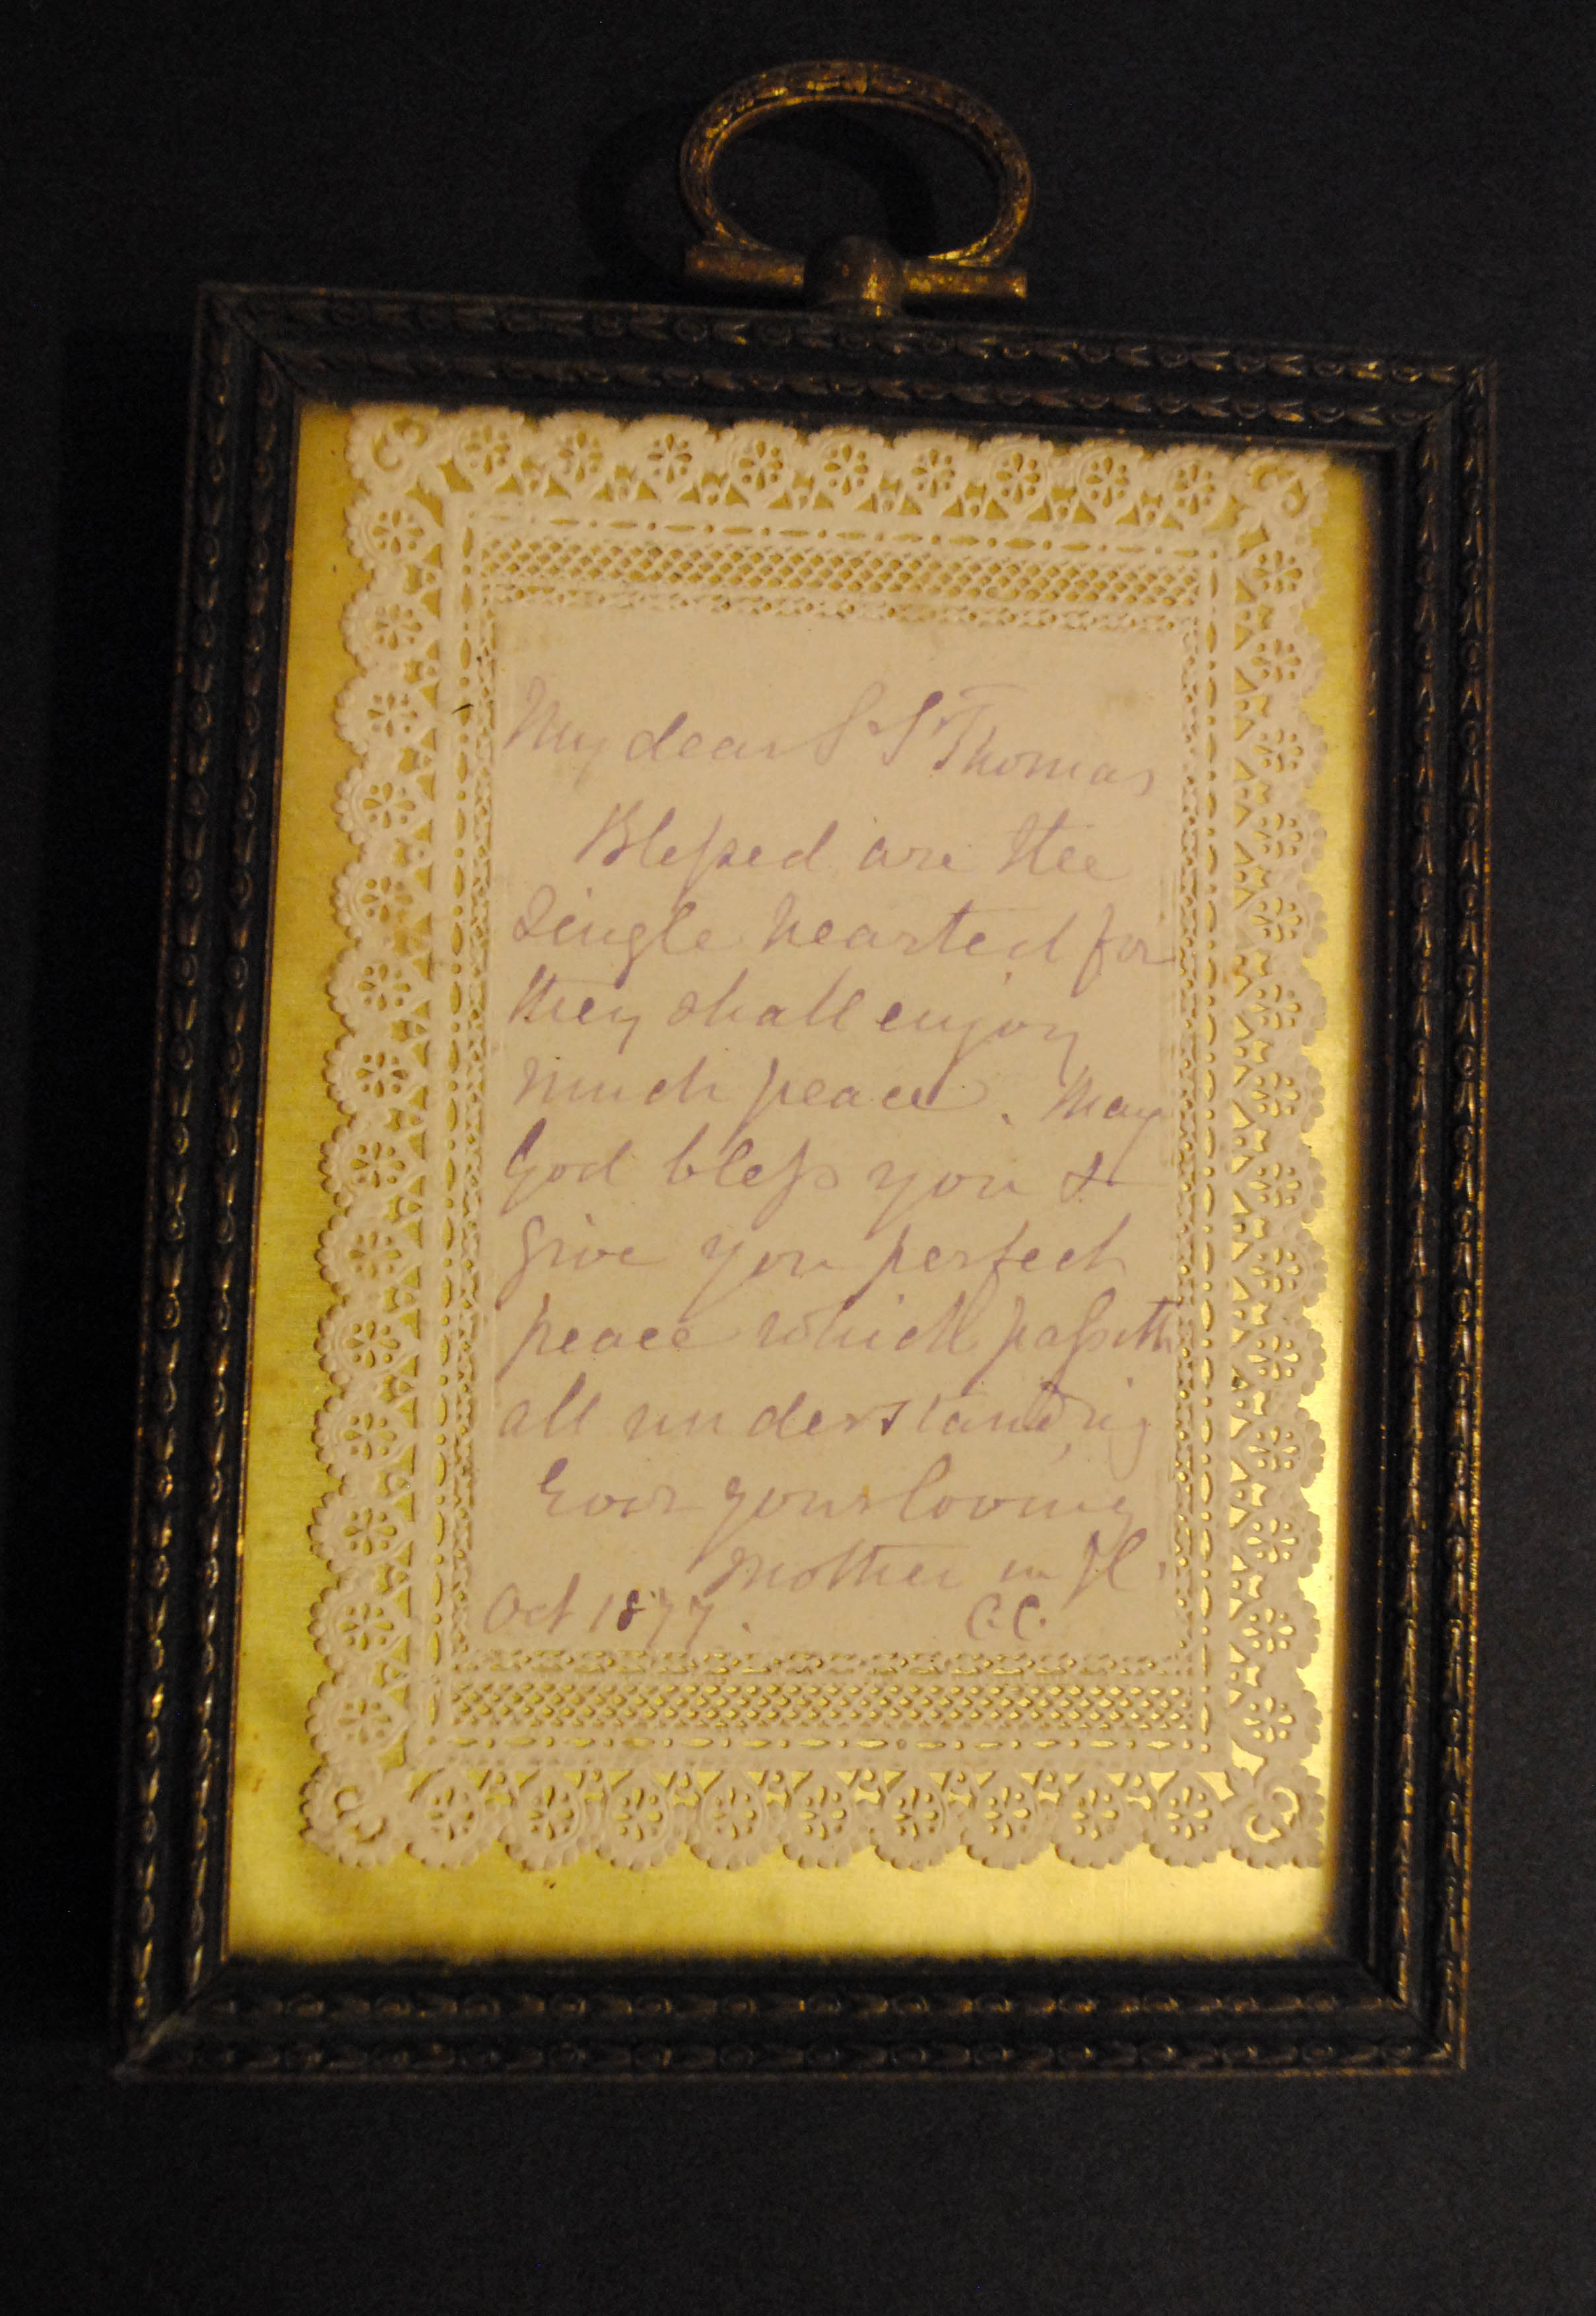 My dear Sr St Thomas
Blessed are the
single hearted for
they shall enjoy
much peace. May
God bless you &
give you perfect
peace which passeth
all understanding
Ever your loving
Mother in X.
Oct 1877. C.C.